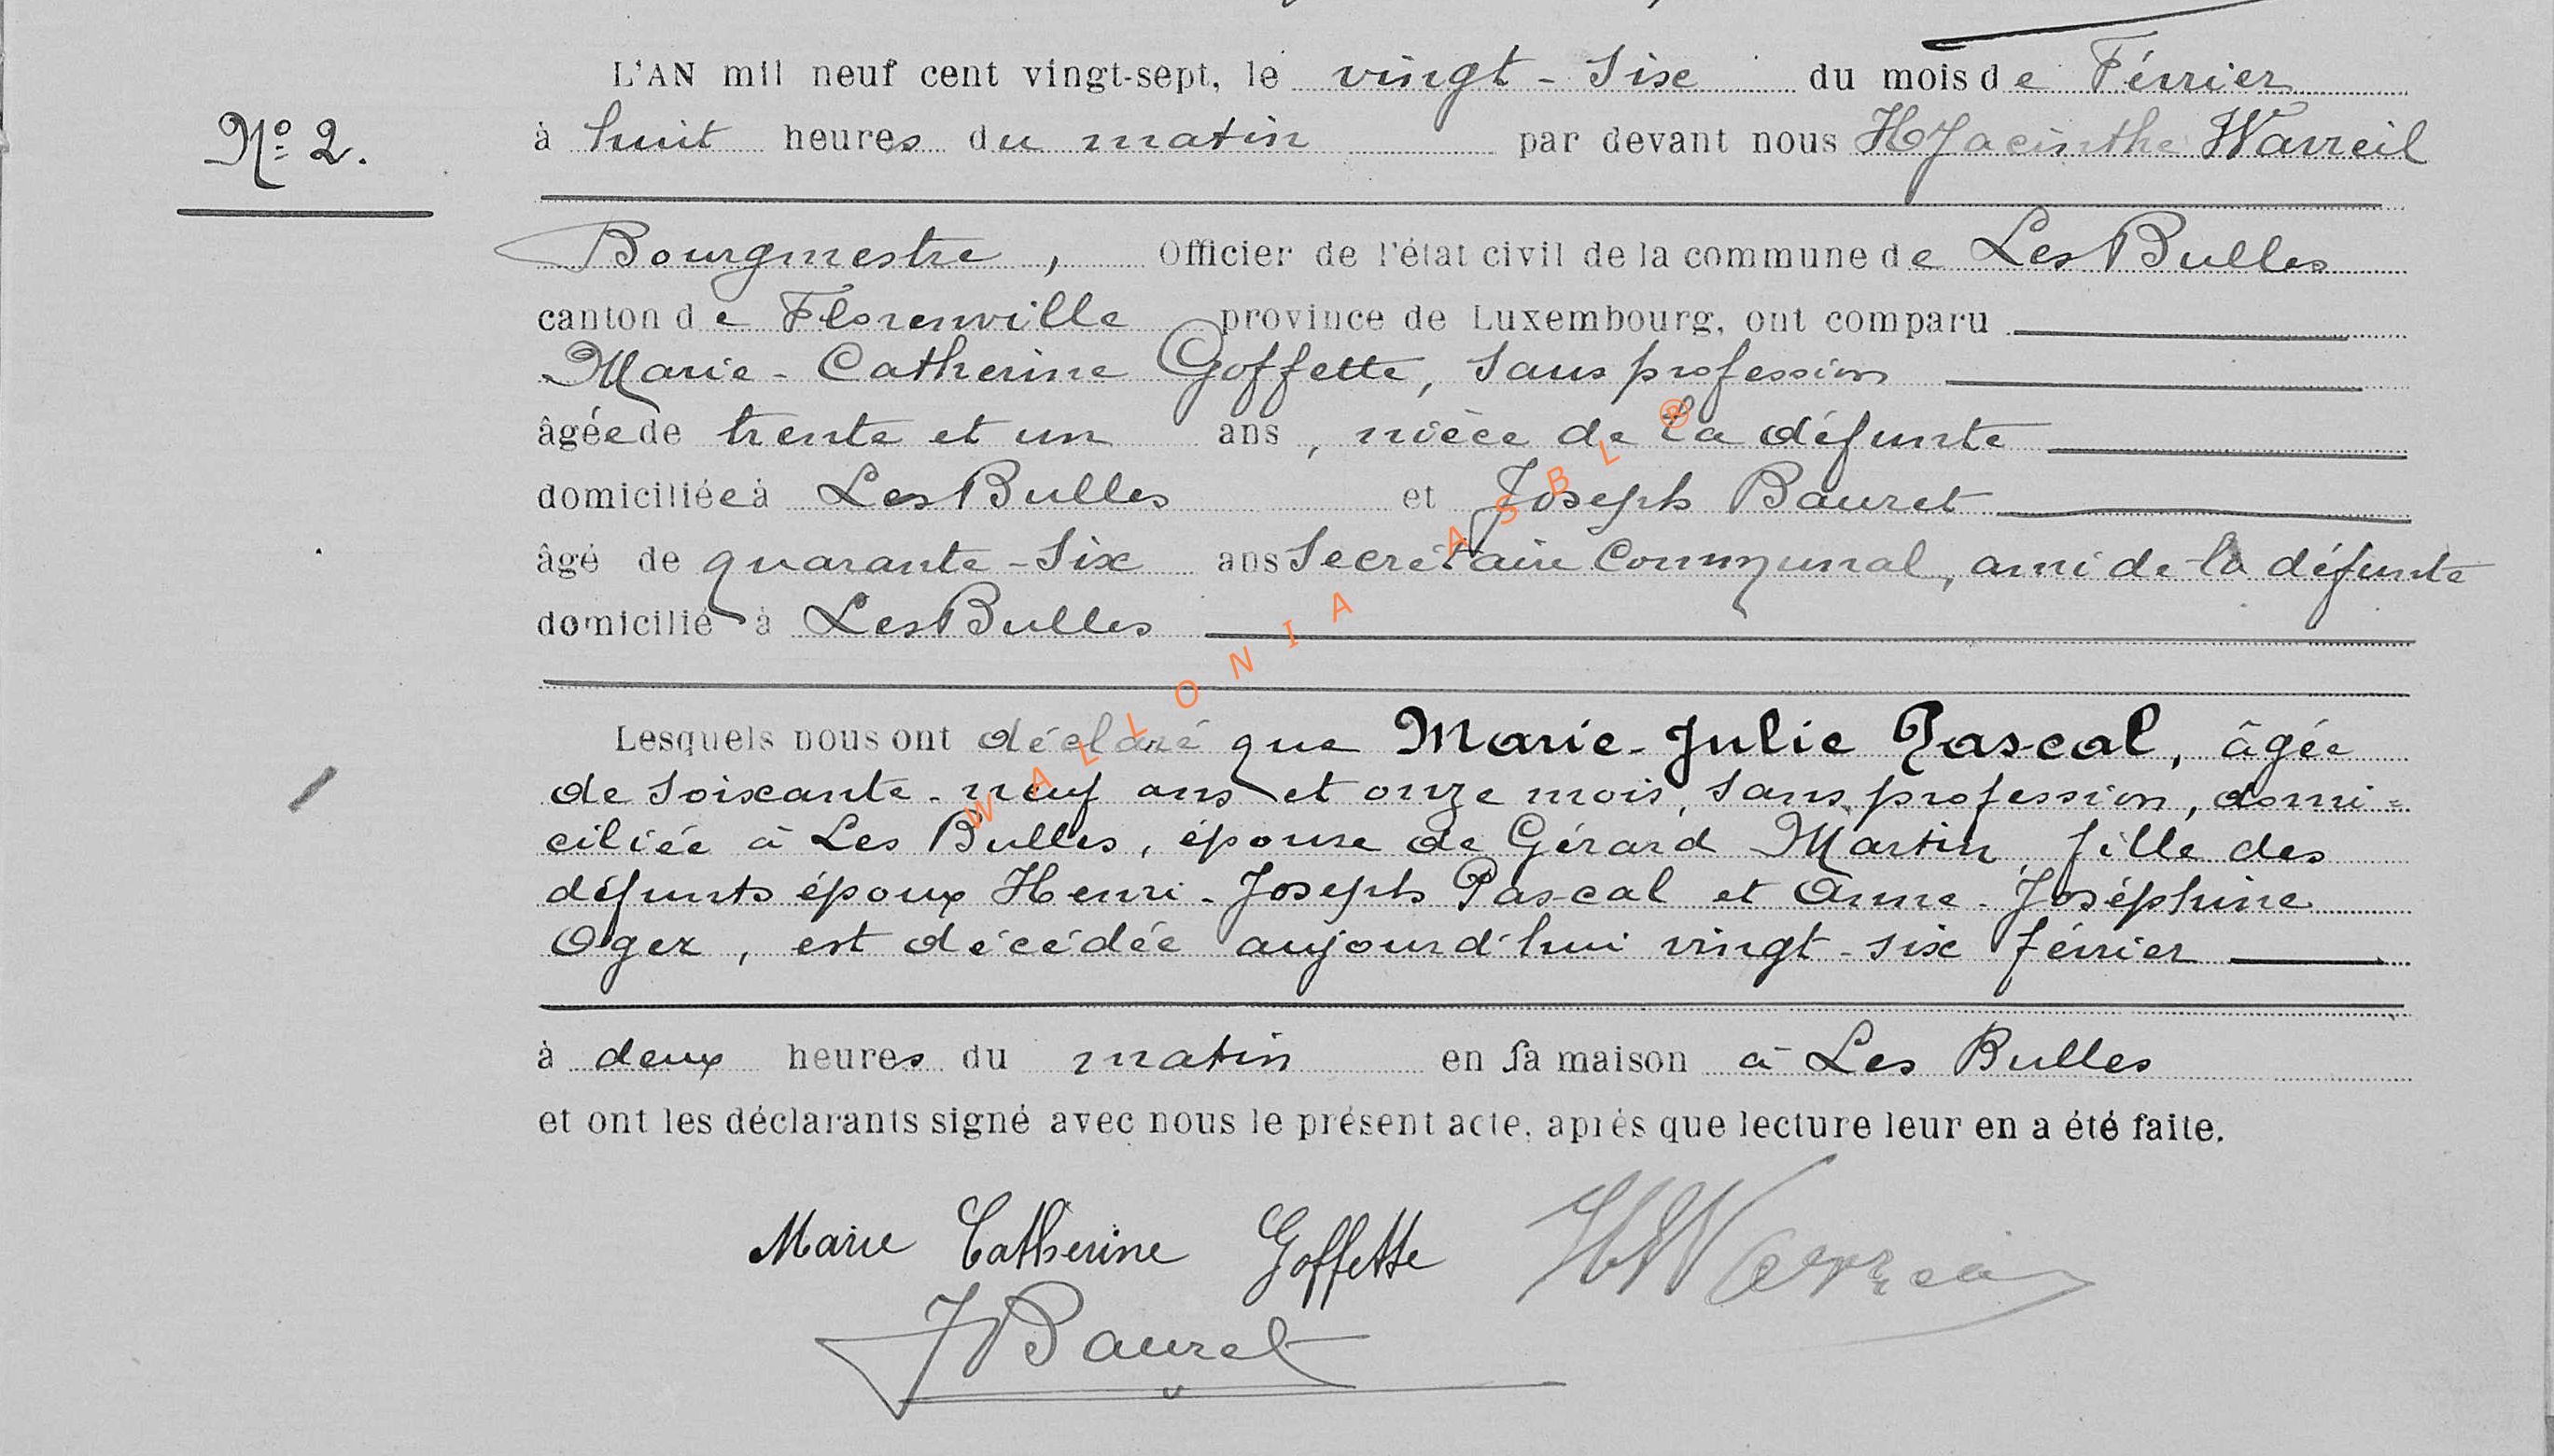 L'AN mil neuf cent vingt-sept, le vingt-six du mois de Février
N° 2.
à huit heures du matin par devant nous Hyacinthe Warzeil
Bourgmestre, Officier de l'état civil de la commune de Les Bulles
canton de Florenville province de Luxembourg, ont comparu
Marie-Catherine Goffette, sans profession
âgée de trente et un ans, nièce de la défunte
domiciliée à Les Bulles et Joseph Bauret
âgé de quarante-six ans Secrétaire Communal, ami de la défunte
domicilié à Les Bulles
Lesquels nous ont déclaré que Marie-Julie Pascal, âgée
de soixante-neuf ans et onze mois, sans profession, domi=
ciliée à Les Bulles, épouse de Gérard Martin, fille des
défunts époux Henri-Joseph Pascal et Anne-Joséphine
Oger, est décédée aujourd'hui vingt-six février
à deux heures du matin en sa maison à Les Bulles
et ont les déclarants signé avec nous le présent acte, après que lecture leur en a été faite.
Marie Catherine Goffette
JBauret
WALLONIA ASBL ®